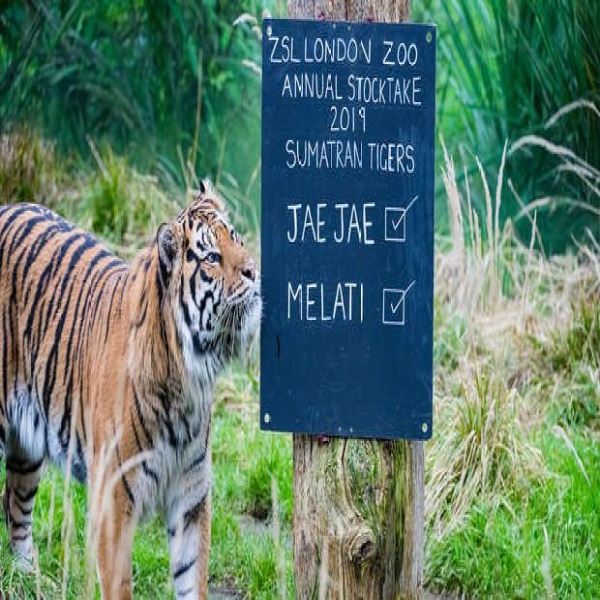 ZSL LONDON ZOO
ANNUAL STOCKTAKE
2019
SUMATRAN TIGERS
JAE JAE
MELATI